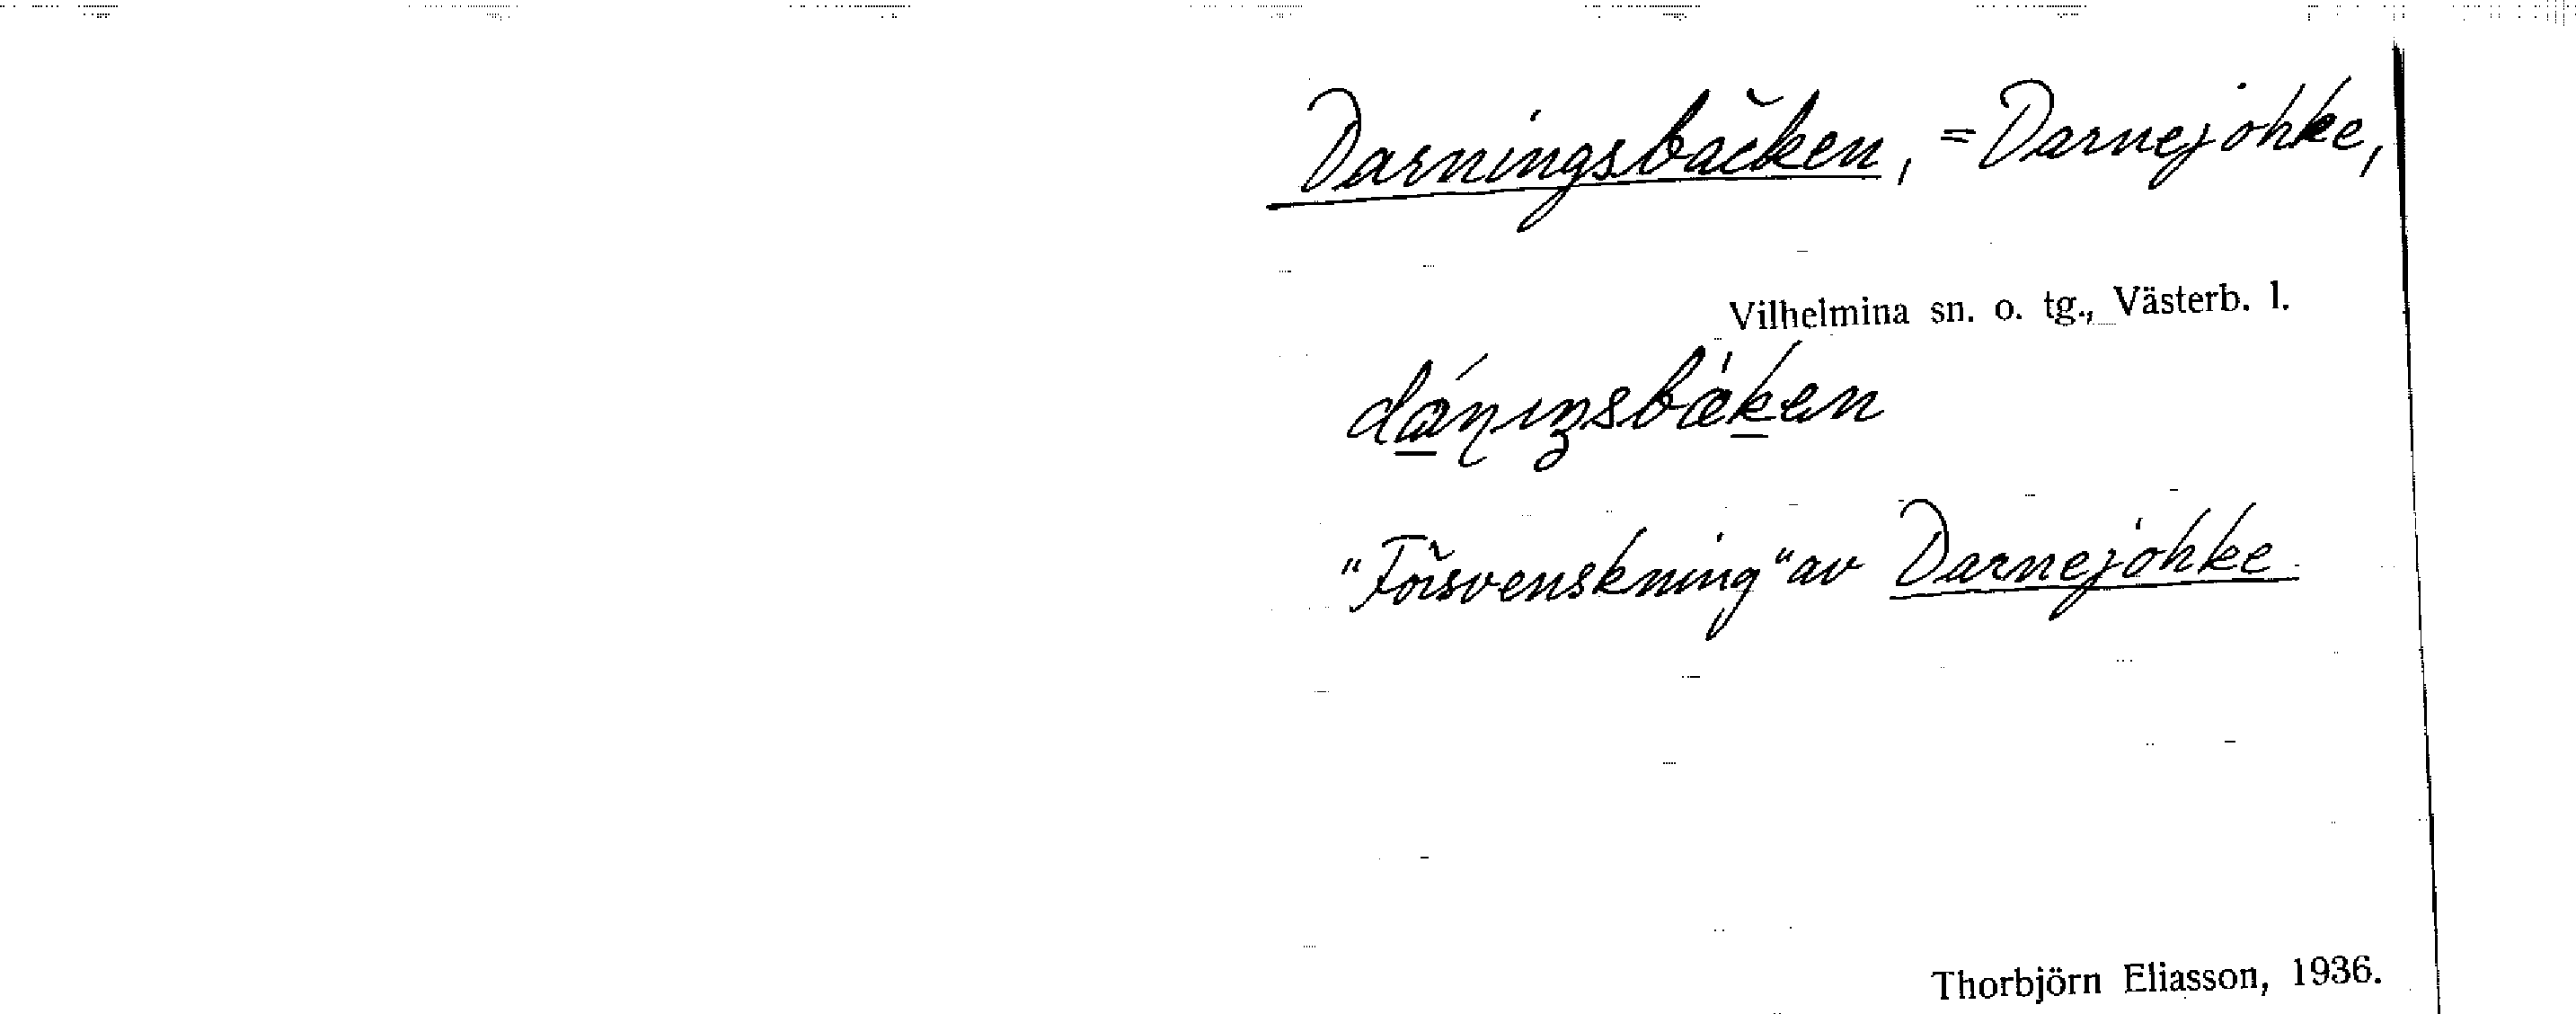 Darningsbäcken, = Darnejohke,
Vilhelmina sn. o. tg., Västerb. l.
"Försvenskning" av Darnejohke
Thorbjörn Eliasson, 1936.